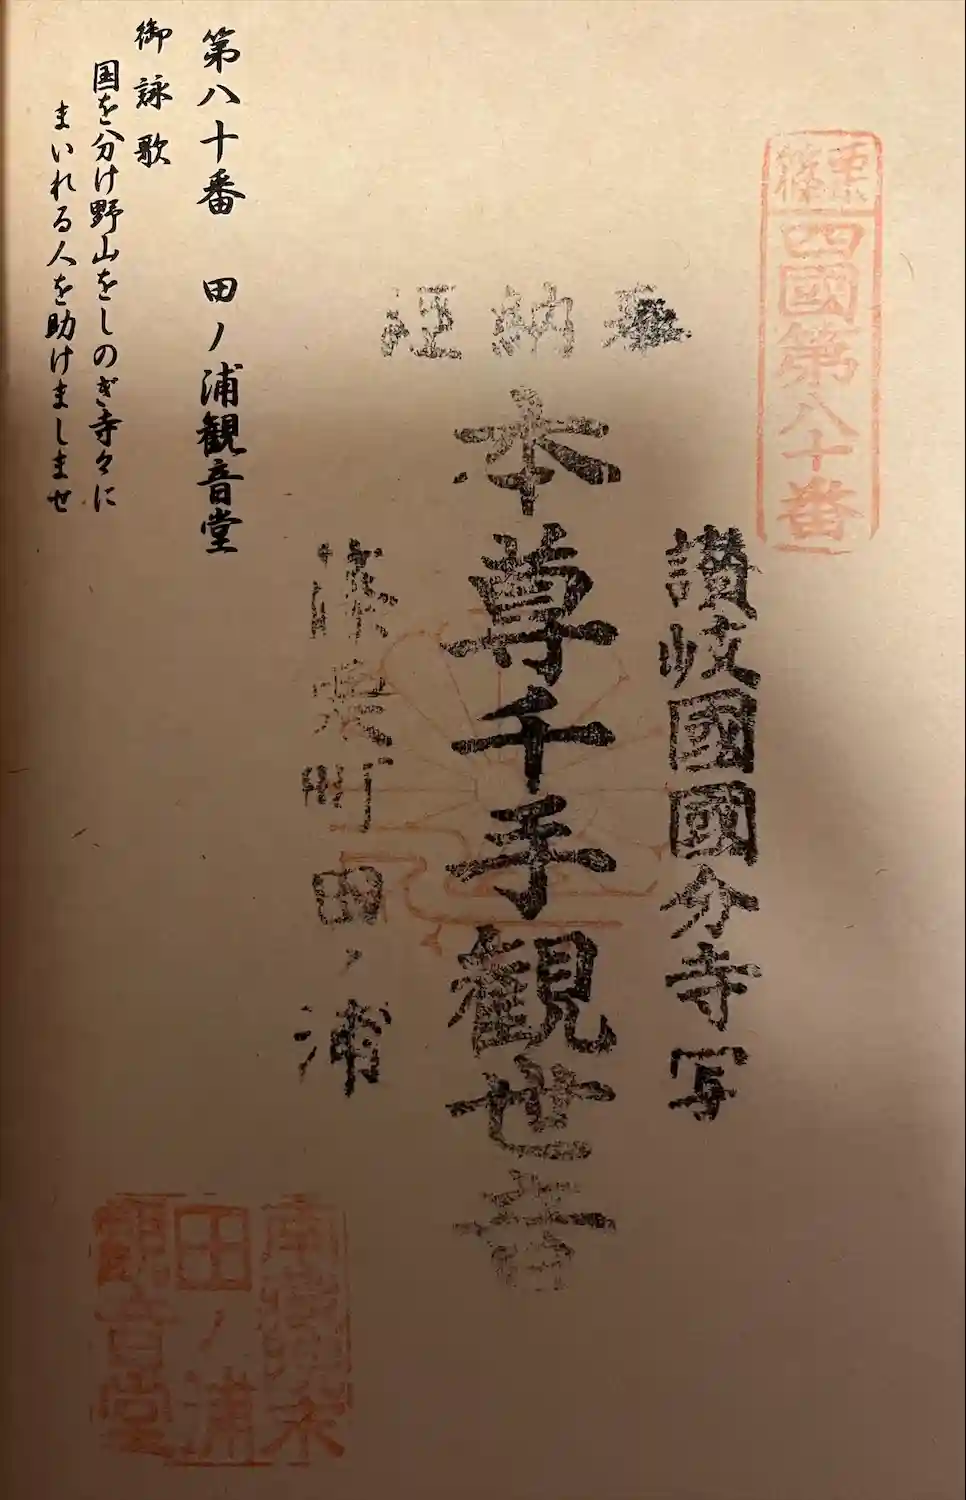 篠栗
四國第八十番
奉納経
讃岐國國分寺写
本尊千手觀世音
篠栗町田ノ浦
第八十番 田ノ浦観音堂
御詠歌
国を分け野山をしのぎ寺々に
まいれる人を助けましませ
田ノ浦
觀音堂